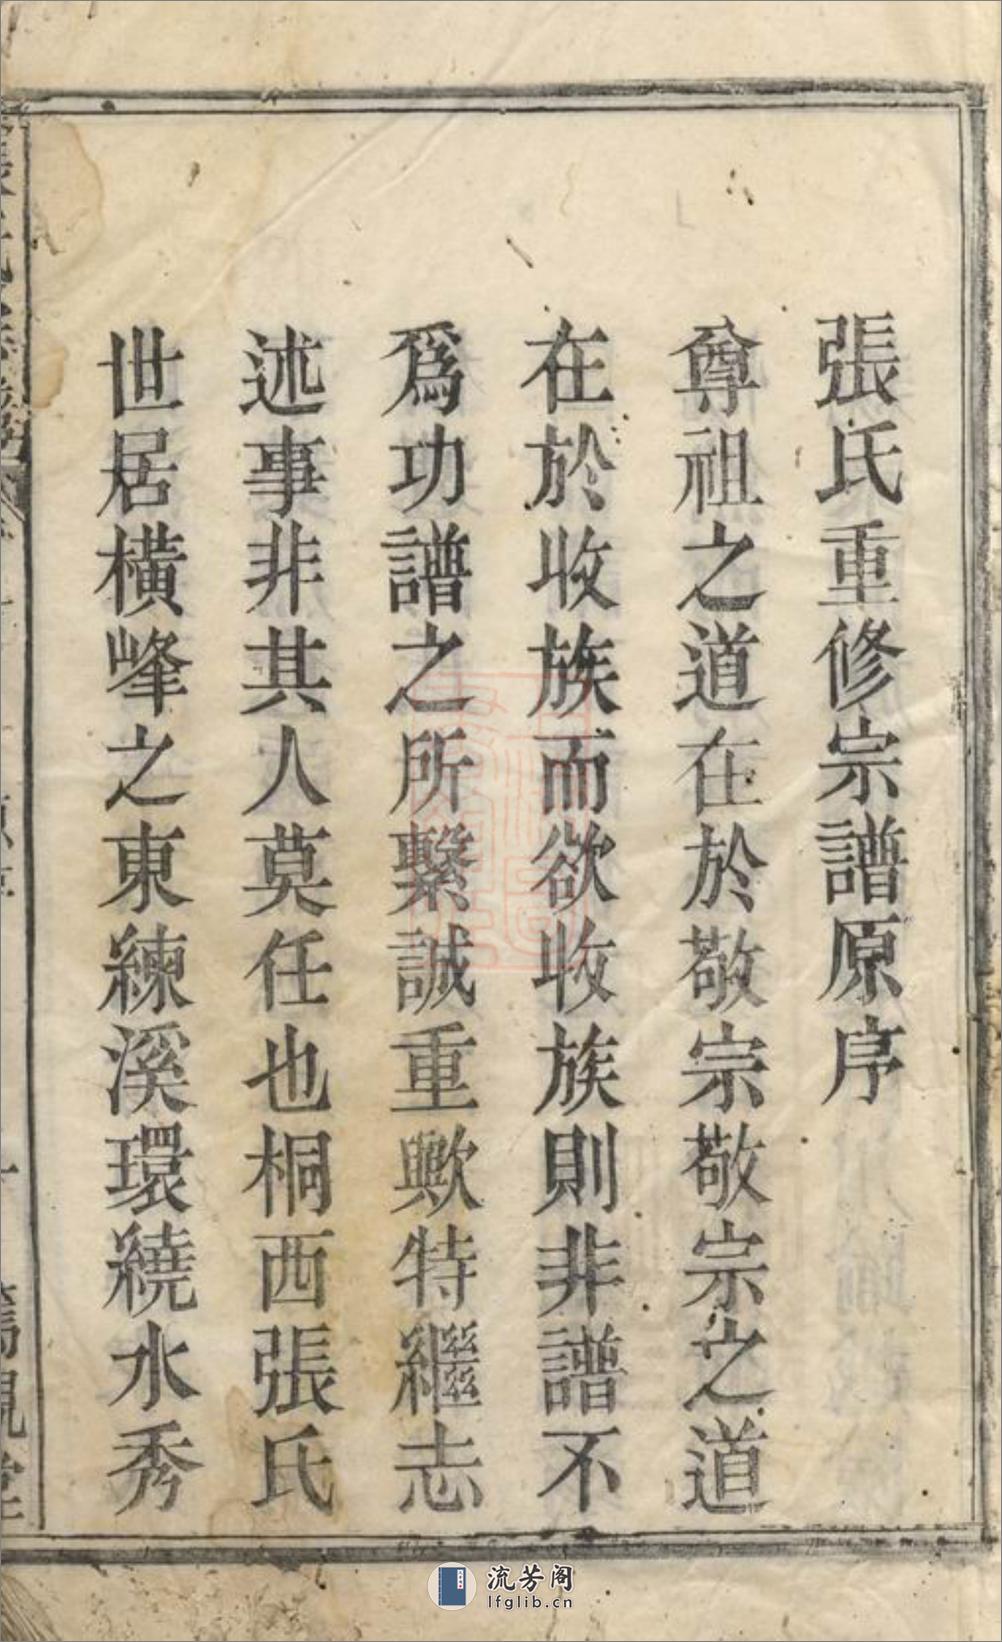 張氏重修宗譜原序
尊祖之道在於敬宗敬宗之道
在於收族而欲收族則非譜不
爲功譜之所繫誠重歟特繼志
述事非其人莫任也桐西張氏
世居橫峰之東練溪環繞水秀
流芳阁
lfglib.cn